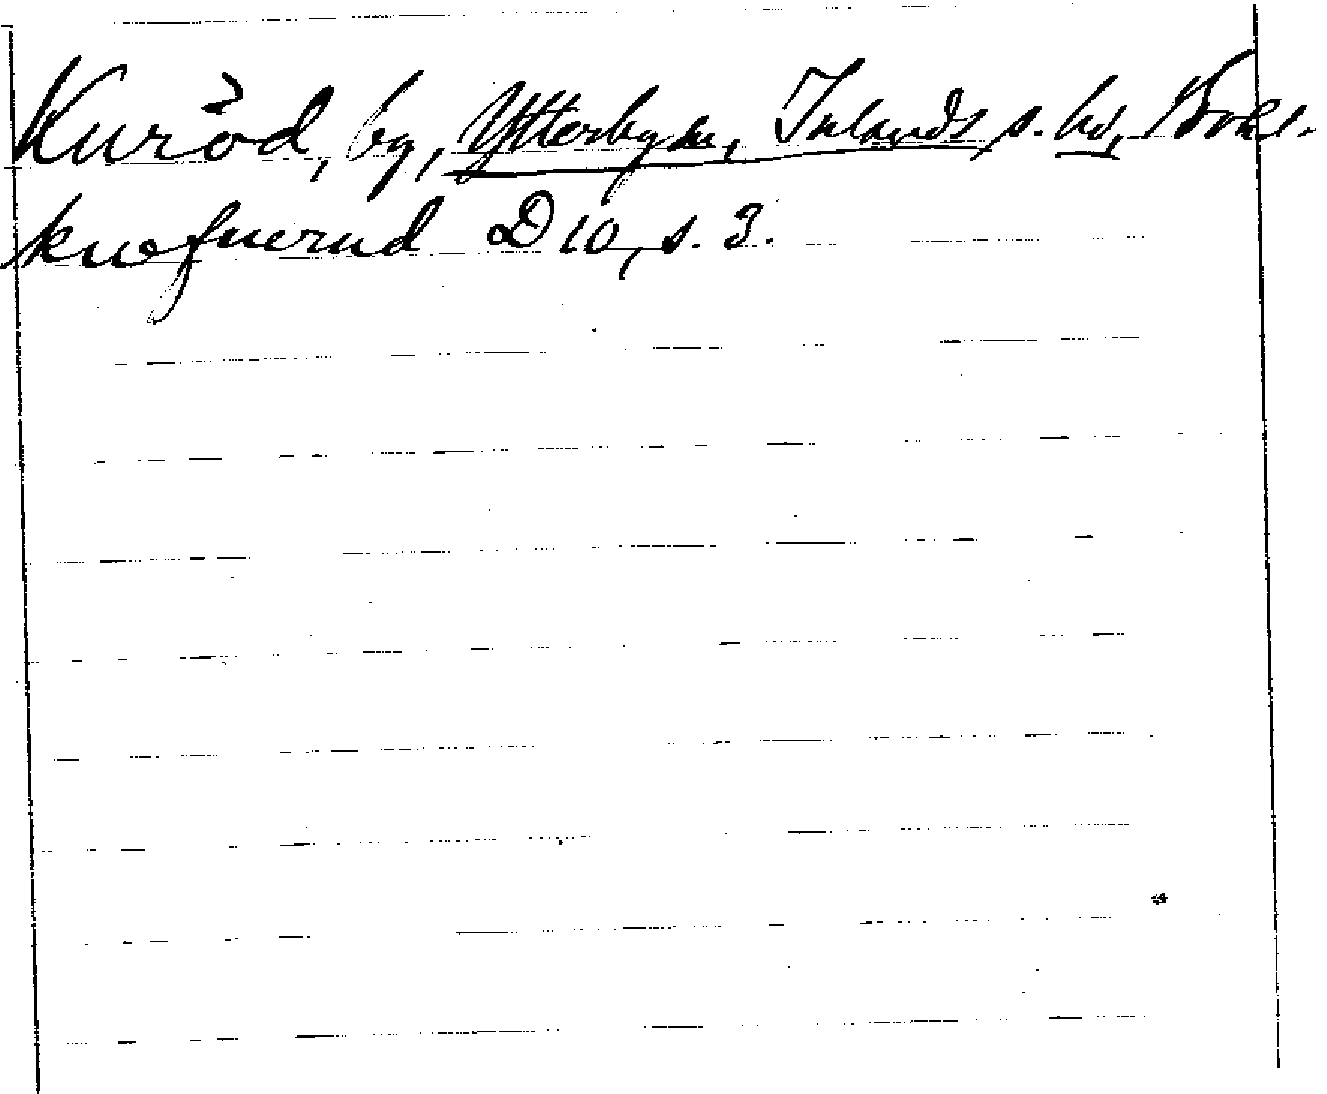 Kuröd, by, Ytterby sn, Inlands s. hd, Bohl.
knefuerud D 10, s. 3.